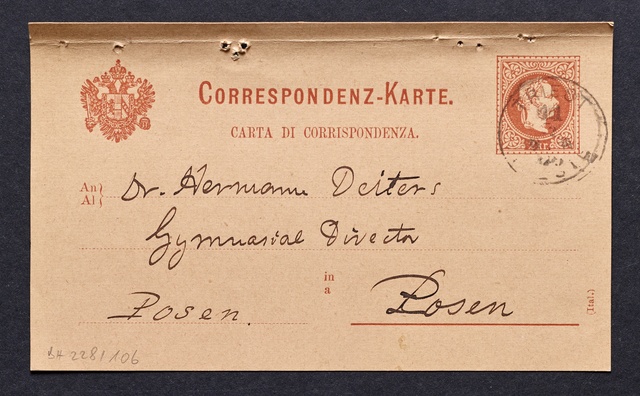 CORRESPONDENZ-KARTE.
CARTA DI CORRISPONDENZA.
An}
Al}
Dr. Hermann Deiters
Gymnasial Director
in
a
Posen
Posen.
(Ital.)
BH 2281/106